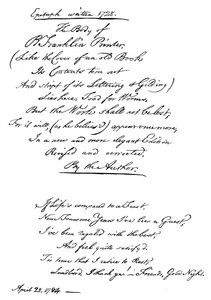 Epitaph written 1728.
The Body of
B Franklin Printer,
(Like the Cover of an old Book
Its Contents torn out
And stript of its Lettering & Gilding)
Lies here, Food for Worms.
But the Work shall not be lost;
For it will, (as he believ'd) appear once more,
In a new and more elegant Edition
Revised and corrected,
By the Author.
If Life's compared to a Feast,
Near Fourscore Years I've been a Guest,
I've been regaled with the best,
And feel quite satisfy'd.
'Tis time that I retire to Rest;
Landlord I thank you! Friends, Good Night.
April 22, 1784